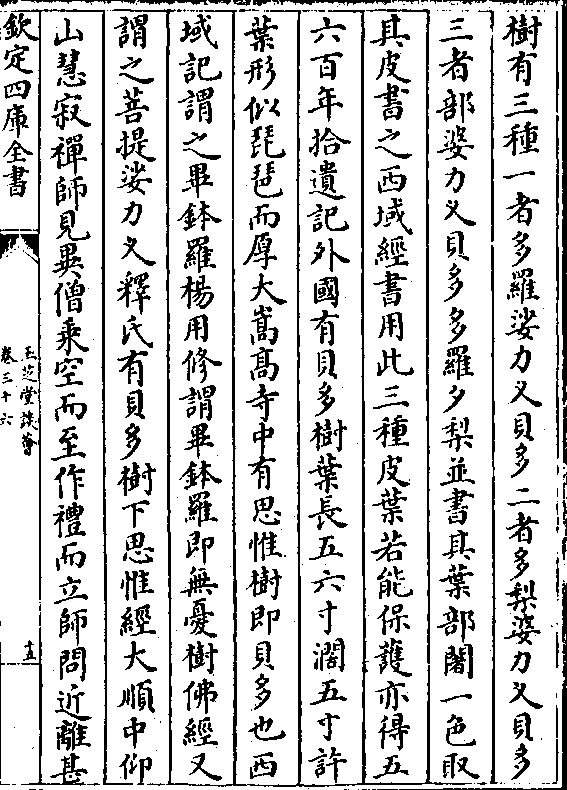 樹有三種一者多羅娑力叉貝多二者多梨婆力叉貝多
三者部婆力叉貝多多羅夕梨並書其葉部闍一色取
其皮書之西域經書用此三種皮葉若能保護亦得五
六百年拾遺記外國有貝多樹葉長五六寸濶五寸許
葉形似琵琶而厚大嵩高寺中有思惟樹即貝多也西
域記謂之畢鉢羅楊用修謂畢鉢羅即無憂樹佛經又
謂之菩提娑力叉釋氏有貝多樹下思惟經大順中仰
山慧寂禪師見異僧乘空而至作禮而立師問近離甚
欽定四庫全書
玉芝堂談薈
卷三十六
十五